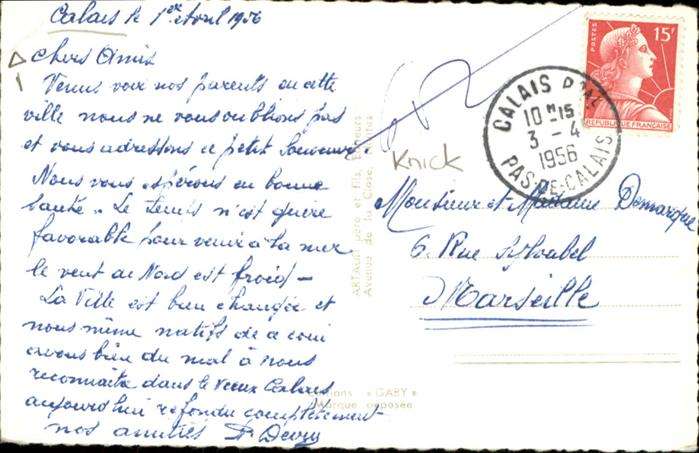 Calais le 1er Avril 1956
Chers Amis
Venus voir nos parents en cette
ville nous ne vous oublions pas
et vous adressons ce petit souvenir
Nous vous espérons en bonne
santé. Le temps n'est guère
favorable pour venir à la mer
le vent du Nord est froid —
La Ville est bien changée et
nous même natifs de ce coin
avons bien du mal à nous
reconnaitre dans le vieux Calais
aujourd'hui refondu complètement
nos amitiés
Knick
POSTES 15F
REPUBLIQUE FRANÇAISE
CALAIS
10 H 15
3 - 4
1956
PAS-DE-CALAIS
Monsieur et Madame Demarque
6. Rue
Marseille
ARTAUD père et fils,
Avenue de la Close,
« GABY »
Marque déposée